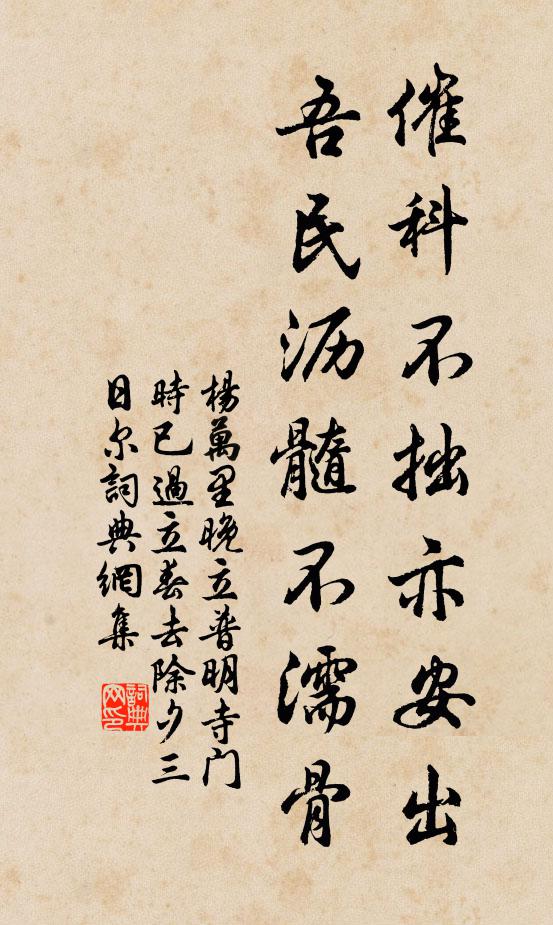 催科不拙亦安出
吾民沥髓不濡骨
楊萬里晚立普明寺门
時已過立春去除夕三
日尔詞典網集
詞典网印